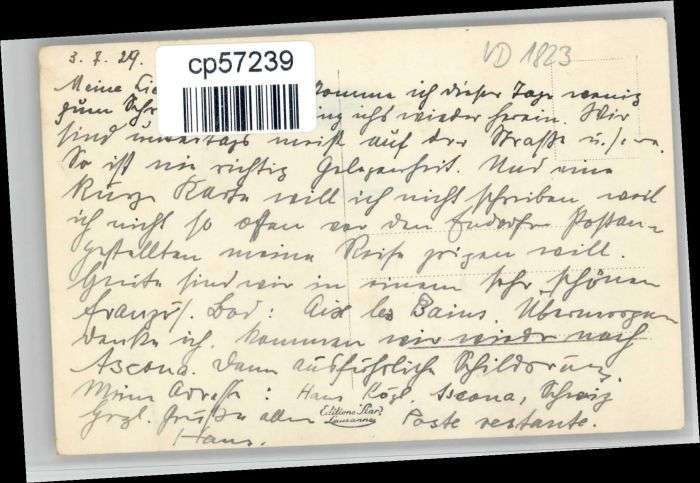 3. 7. 29.
VD 1823
cp57239
Meine komme ich dieser Tage wenig
zum ichs wieder herein. Wir
sind untertags meist auf der Straße u.s.w.
So ist nie richtig Gelegenheit. Und eine
kurze Karte will ich nicht schreiben, weil
ich nicht so offen vor den Endorfer Postan-
gestellten meine Reise zeigen will.
Heute sind wir in einem sehr schönen
französ. Bad: Aix les Bains. Übermorgen
denke ich, kommen wir wieder nach
Ascona. Dann ausführliche Schilderung.
Meine Adresse: Hans Kögl. Ascona, Schweiz
Poste restante.
Herzl. Grüße allen
Hans.
Editions "Star"
Lausanne